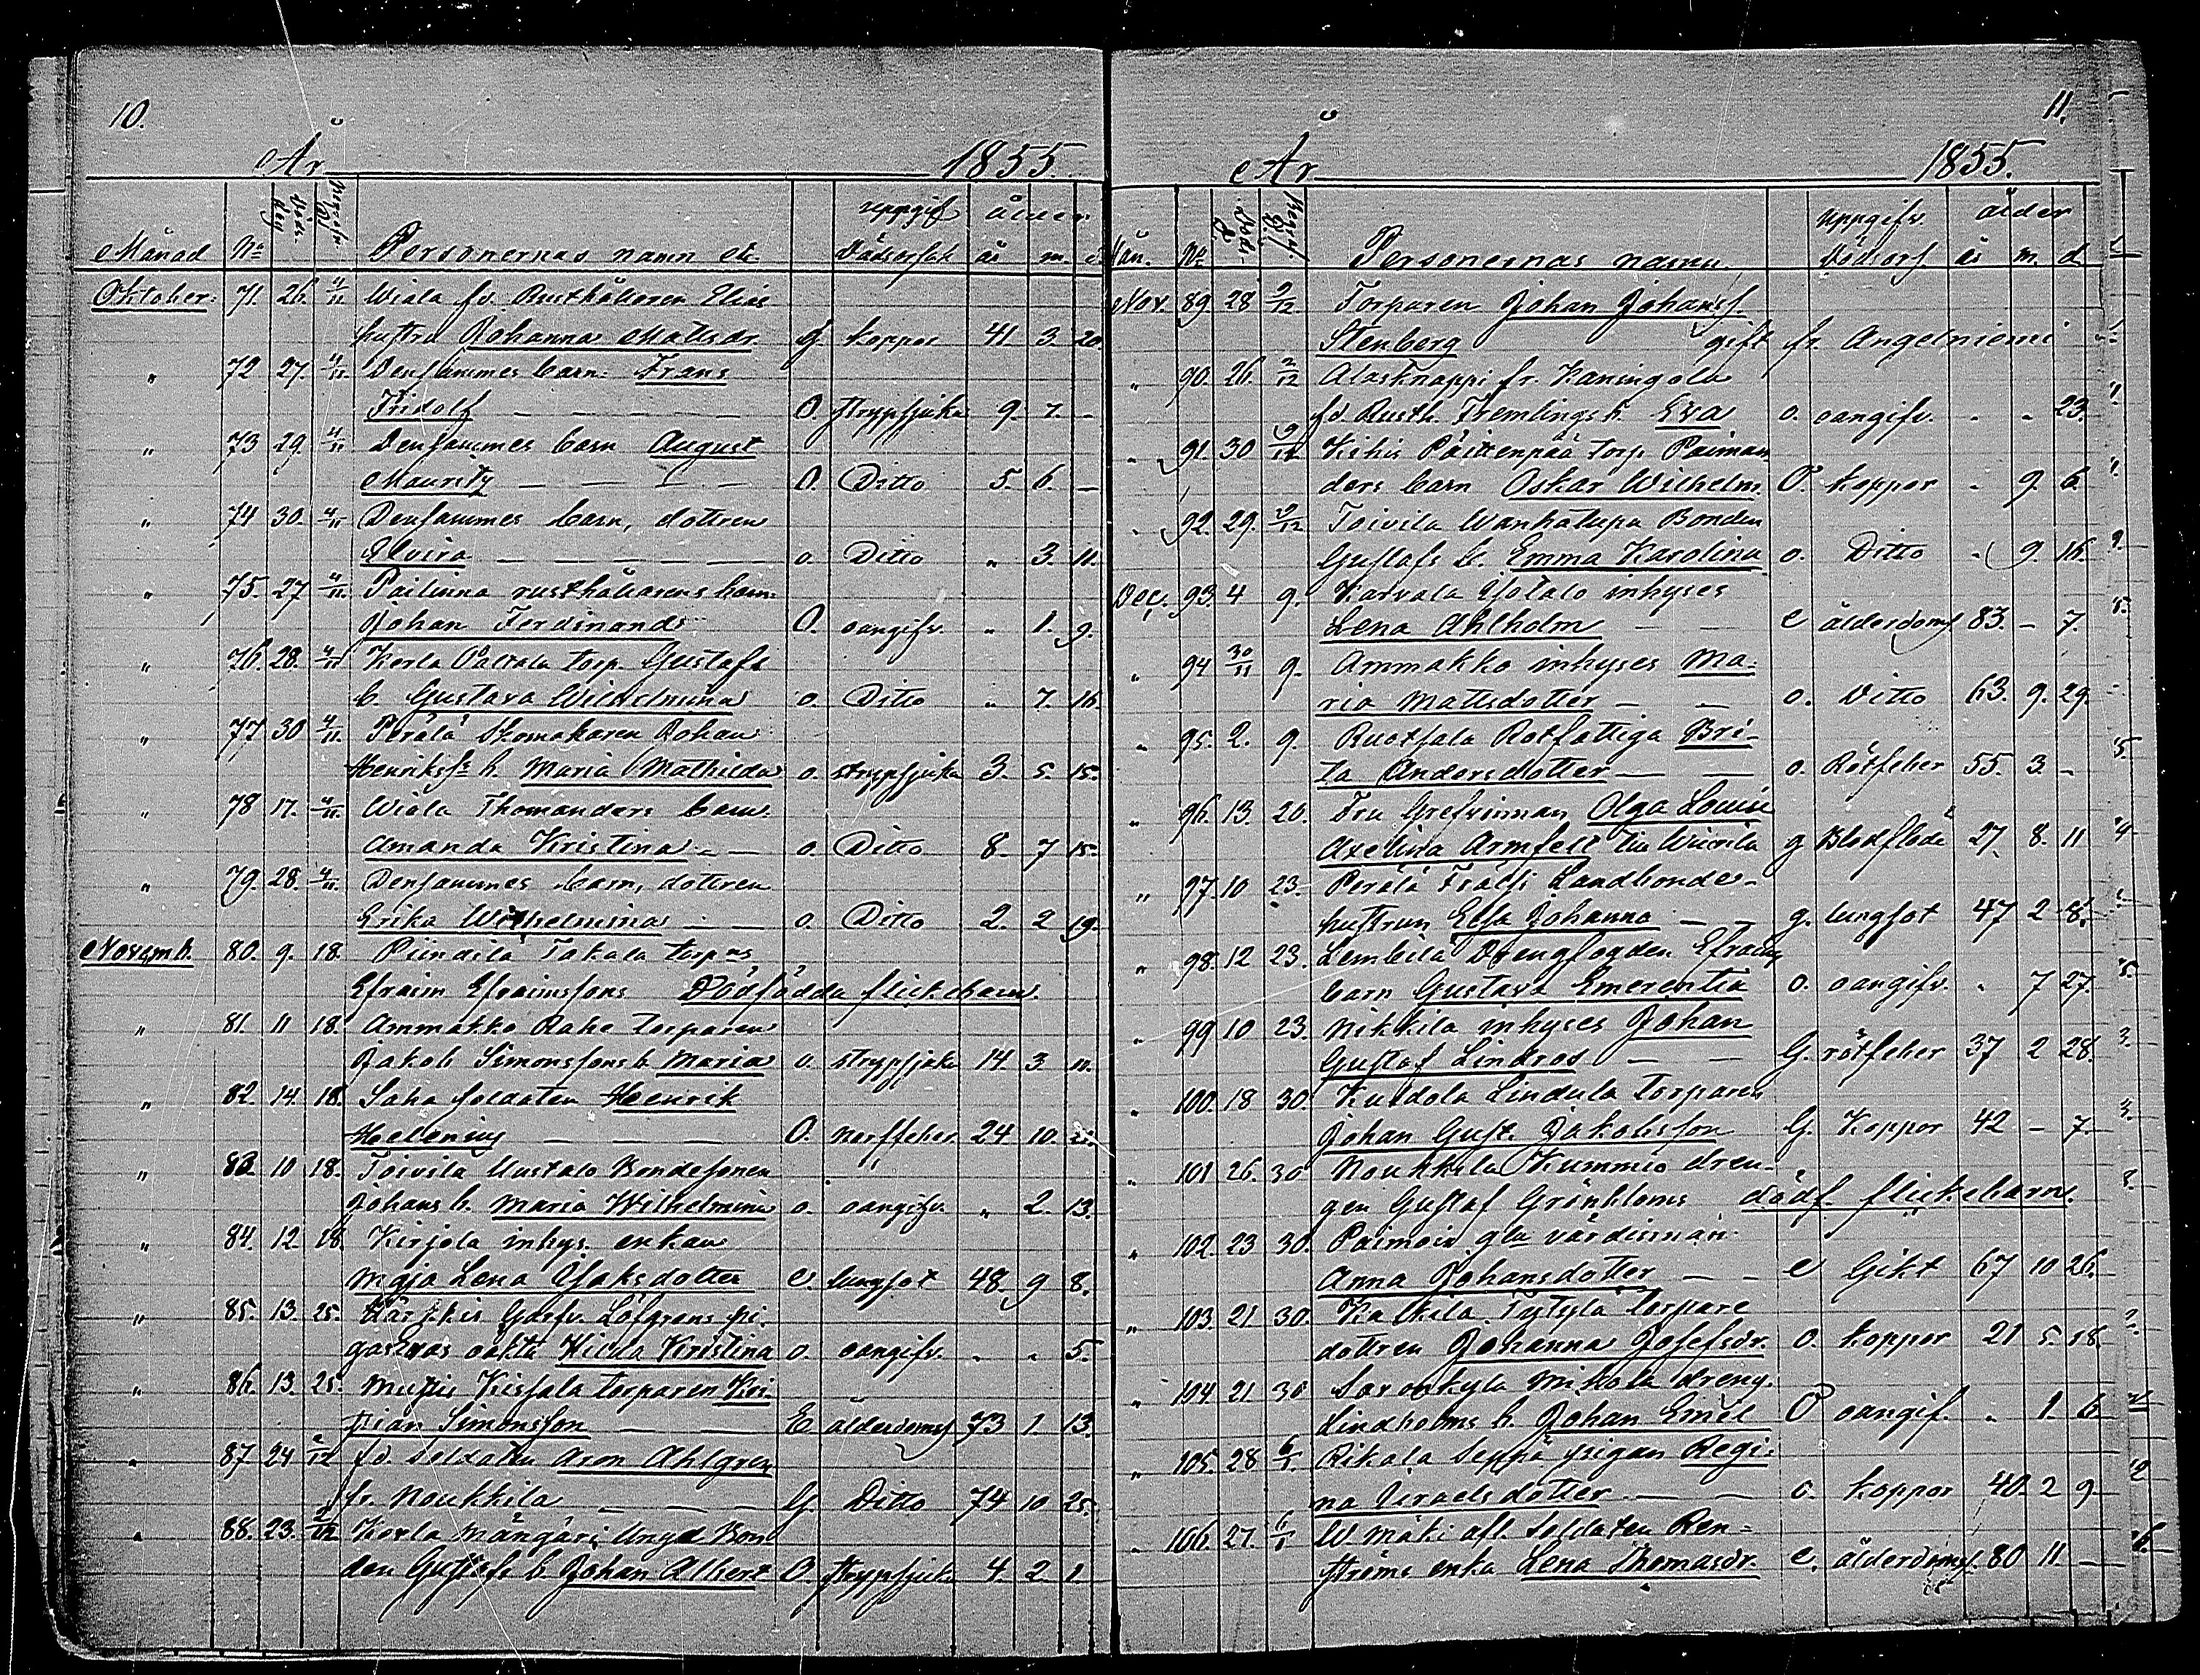 10.
År 1855.
Månad No Döds dag Begrafn. d. Personernas namn etc. uppgif Dödsorsak ålder år m. d.
Oktober: 71. 26. 4/11 Wiala fd. Rusthållaren Elias
hustru Johanna Mattsdr. g koppor 41 3 20.
" 72. 27. 4/11. Densammes barn: Frans
Fridolf — — — — O. strypsjuka 9. 7. -
" 73 29. 4/11 Densammes barn August
Mauritz — — — — O. Ditto 5. 6. -
" 74 30. 4/11 Densammes barn, dottren
Elvira — — — — — o. Ditto " 3. 11.
" 75. 27 4/11. Pailinna rusthållarens barn:
Johan Ferdinand O. oangifv. " 1. 9.
" 76. 28. 4/11 Kerla Påltala torp. Gustafs
b. Gustava Wilhelmina o. Ditto " 7. 16.
" 77 30 4/11. Perälä Skomakaren Johan
Henrikss b. Maria Mathilda o. strypsjuka 3. 5. 15.
" 78 17. 4/11. Wiala Thomanders barn.
Amanda Kristina — — o. Ditto 8. 7 15.
" 79. 28. 4/11. Densammes barn, dottren
Erika Wilhelmina — o. Ditto 2. 2 19.
Novemb. 80. 9. 18. Piindilä Takala torp:ns
Efraim Efraimssons Dödfödda flickebarn.
" 81. 11 18. Ammakko Rahe torparen
Jakob Simonssons b. Maria o. strypsjuka 14. 3. 11.
" 82. 14. 18. Saha soldaten Henrik
Helenius — — — O. nerffeber 24 10.
" 83. 10 18. Toivila Uustalo Bondesonen
Johans b. Maria Wilhelmina o. oangifv. " 2. 13.
" 84. 12. 18. Kirjola inhys. enkan
Maja Lena Isaksdotter e. lungsot 48. 9 8.
" 85. 13. 25. Garfv. Löfgrens pi.
gas Evas oäkta Hilda Kristina o. oangifv. " " 5.
" 86. 13. 25. Kissala torparen Kri.
stian Simonsson — — E ålderdoms 73 1 13.
" 87 24 2/12 fd. soldaten Aron Ahlgren
fr. Noukkila — — — G. Ditto 74 10 25.
" 88. 23. 2/12 Kerla Mångåri Unge Bon
den Gustafs b. Johan Albert O. strypsjuka 4. 2. 1.
11.
År 1855.
Mån. No Döds d. Begrf. d. Personernas namn. uppgifv. Dödsors. ålder år m. d.
Nov. 89 28 9/12 Torparen Johan Johanss.
Stenberg gift fr. Angelniemi
" 90. 26. 2/12 Alasknappi fr. Karingola
fd. Rusth. Fremlings b. Eva o. oangifv. - - 23.
" 91. 30 9/12 Kihis Päittenpää torp. Paiman
ders barn Oskar Wilhelm. O. koppor - 9. 6.
" 92. 29. 9/12 Toivila Wanhatupa Bonden
Gustafs b. Emma Karolina o. Ditto - 9. 16.
Dec. 93. 4 9. Karvala Ylötalo inhyses
Lena Ahlholm — — e ålderdoms 83. - 7.
" 94 30/11 9. Ammakko inhyses Ma:
ria Mattsdotter — — o. Ditto 63. 9. 29.
" 95. 2. 9. Ruotsala Rotfattiga Bri-
ta Andersdotter — — o. Rötfeber 55. 3. -
" 96. 13. 20. Fru Grefvinnan Olga Louise
Axelina Armfelt g Blodflöde 27. 8. 11
" 97. 10 23. Perälä Frälse Landbonde-
hustrun Elsa Johanna — g. lungsot 47 2 8.
" 98. 12 23. Lembilä Drengfogden Efraims
barn Gustava Emerentia o. oangifv. " 7 27.
" 99 10 23. Nikkilä inhyses Johan
Gustaf Lindros — — G. rötfeber 37 2 28.
" 100. 18 30. Kuldola Lindula torparen
Johan Gust. Jakobsson G. Koppor 42 - 7.
" 101 26. 30 Noukkila Kummio dren-
gen Gustaf Grönbloms dödf. flickebarn.
" 102. 23 30. Paimois gla värdinnan
Anna Johansdotter — — e Gikt 67 10 26.
" 103. 21 30. Kalkila Tytylä torpare
dottren Johanna Josefsdr. o. koppor 21 5. 18.
" 104. 21. 30 Saronkylä Mikola dreng.
Lindholms b. Johan Emil O oangif. " 1. 6.
" 105. 28 6/1. Rikala Seppä pigan Regi:
na Israelsdotter — — o. koppor 40. 2 9.
" 106. 27. 6/1 W. Mäki afl. Soldaten Ren-
ströms enka Lena Thomasdr. e. ålderdoms 80 11 -